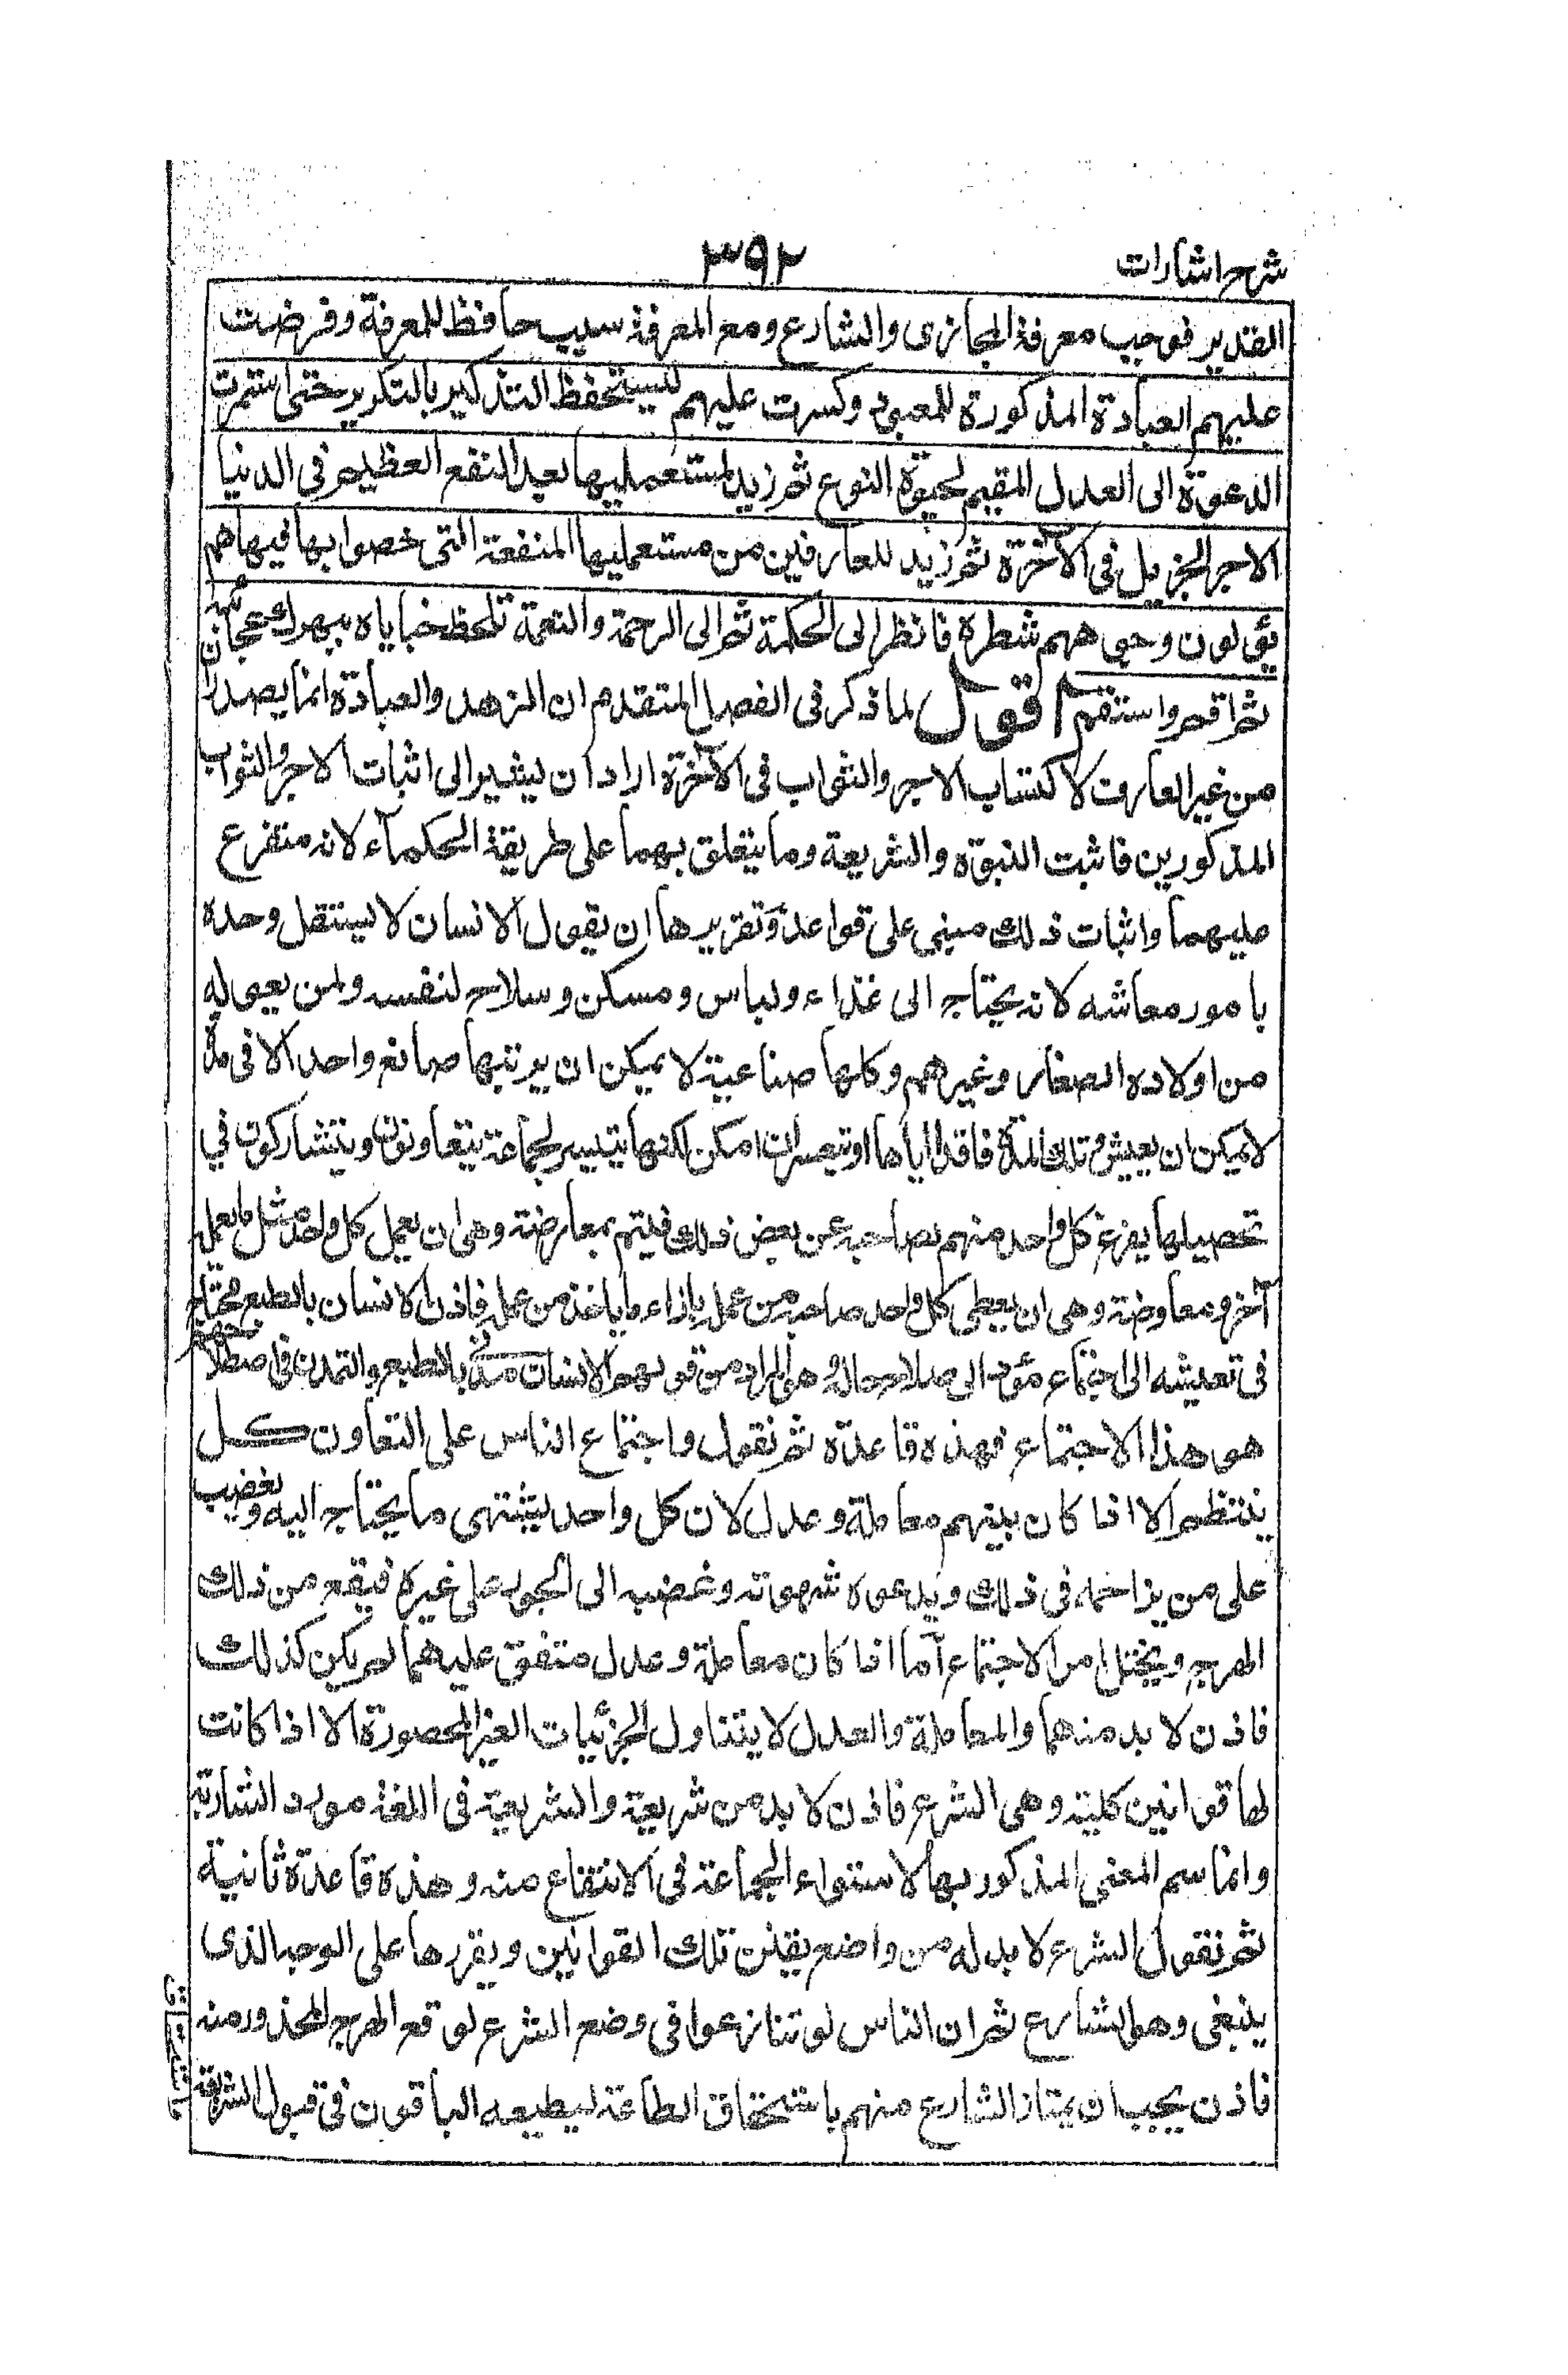 شرح اشارات
٣٩٢
القدير فوجب معرفة المجازى والشارع ومع المعرفة سبب حافظ للمعرفة وفرضت
عليهم العبادة المذكورة للمعبود وكررت عليهم ليستحفظ التذكير بالتكرير حتى استمرت
الدعوة الى العدل المقيم لحيوة النوع ثم زيد لمستعمليها بعد النفع العظيم فى الدنيا
الاجر الجزيل فى الآخرة ثم زيد للعارفين من مستعمليها المنفعة التى خصوا بها فيما هم
يؤلون وجوههم شطره فانظر الى الحكمة ثم الى الرحمة والنعمة تلحظ خبايا‌ه يبهرك عجائبه
ثم اقم واستقم اقول لما ذكر فى الفصل المتقدم ان الزهد والعبادة انما يصدران
من غير العارف لاكتساب الاجر والثواب فى الآخرة اراد ان يشير الى اثبات الاجر والثواب
المذكورين فاثبت النبوة والشريعة وما يتعلق بهما على طريقة الحكماء لانه متفرع
عليهما واثبات ذلك مبنى على قواعد وتقريرها ان يقول الانسان لا يستقل وحده
بامور معاشه لانه يحتاج الى غذاء ولباس ومسكن وسلاح لنفسه ولمن يعوله
من اولاده الصغار وغيرهم وكلها صناعية لا يمكن ان يرتبها صانع واحد الا فى مدة
لا يمكن ان يعيش تلك المدة فاقدا اياها او يتعسر ان امكن لكنها يتيسر لجماعة يتعاونون ويتشاركون في
تحصيلها يفرغ كل واحد منهم لصاحبه عن بعض ذلك فيتم بمعارضة وهى ان يعمل كل واحد مثل ما يعمله
آخر ومعاوضة وهى ان يعطى كل واحد صاحبه من عمله بازاء ما ياخذ من عمله فاذن الانسان بالطبع محتاج
فى تعيشه الى اجتماع مؤد الى صلاح حاله وهو المراد من قولهم الانسان مدنى بالطبع والتمدن فى اصطلاحهم
هو هذا الاجتماع فهذه قاعدة ثم نقول واجتماع الناس على التعاون كل
ينتظم الا اذا كان بينهم معاملة وعدل لان كل واحد يشتهى ما يحتاج اليه ويغضب
على من يزاحمه فى ذلك ويدعوه شهوته وغضبه الى الجور على غيره فيقع من ذلك
الهرج ويختل امر الاجتماع اما اذا كان معاملة وعدل متفق عليهما لم يكن كذلك
فاذن لا بد منهما والمعاملة والعدل لا يتناول الجزئيات الغير المحصورة الا اذا كانت
لها قوانين كلية وهى الشرع فاذن لا بد من شريعة والشريعة فى اللغة مورد الشاربة
وانما سم المعنى المذكور بها لاستواء الجماعة فى الانتفاع منه وهذه قاعدة ثانية
ثم نقول الشرع لا بد له من واضع يقنن تلك القوانين ويقررها على الوجه الذى
ينبغى وهو الشارع ثم ان الناس لو تنازعوا فى وضع الشرع لوقع الهرج المحذور منه
فاذن يجب ان يمتاز الشارع منهم باستحقاق الطاعة ليطيعه الباقون فى قبول الشريعة